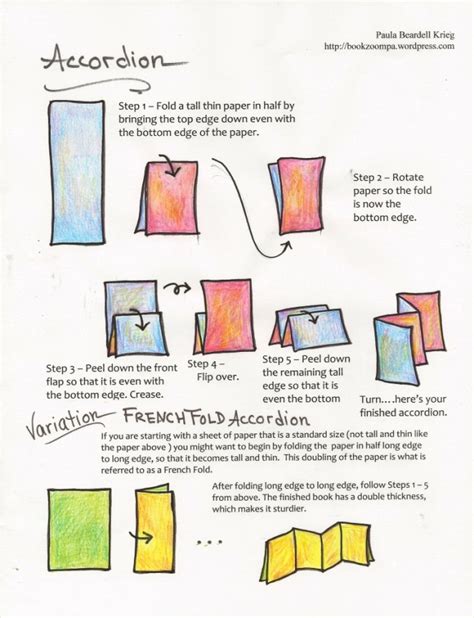 Paula Beardell Krieg
http://bookzoompa.wordpress.com
Accordion
Step 1 – Fold a tall thin paper in half by
bringing the top edge down even with
the bottom edge of the paper.
Step 2 – Rotate
paper so the fold
is now the
bottom edge.
Step 3 – Peel down the front
flap so that it is even with
the bottom edge. Crease.
Step 4 –
Flip over.
Step 5 – Peel down
the remaining tall
edge so that it is
even the bottom
Turn....here's your
finished accordion.
Variation FRENCH FOLD Accordion
If you are starting with a sheet of paper that is a standard size (not tall and thin like
the paper above ) you might want to begin by folding the paper in half long edge
to long edge, so that it becomes tall and thin. This doubling of the paper is what is
referred to as a French Fold.
After folding long edge to long edge, follow Steps 1 – 5
from above. The finished book has a double thickness,
which makes it sturdier.
...